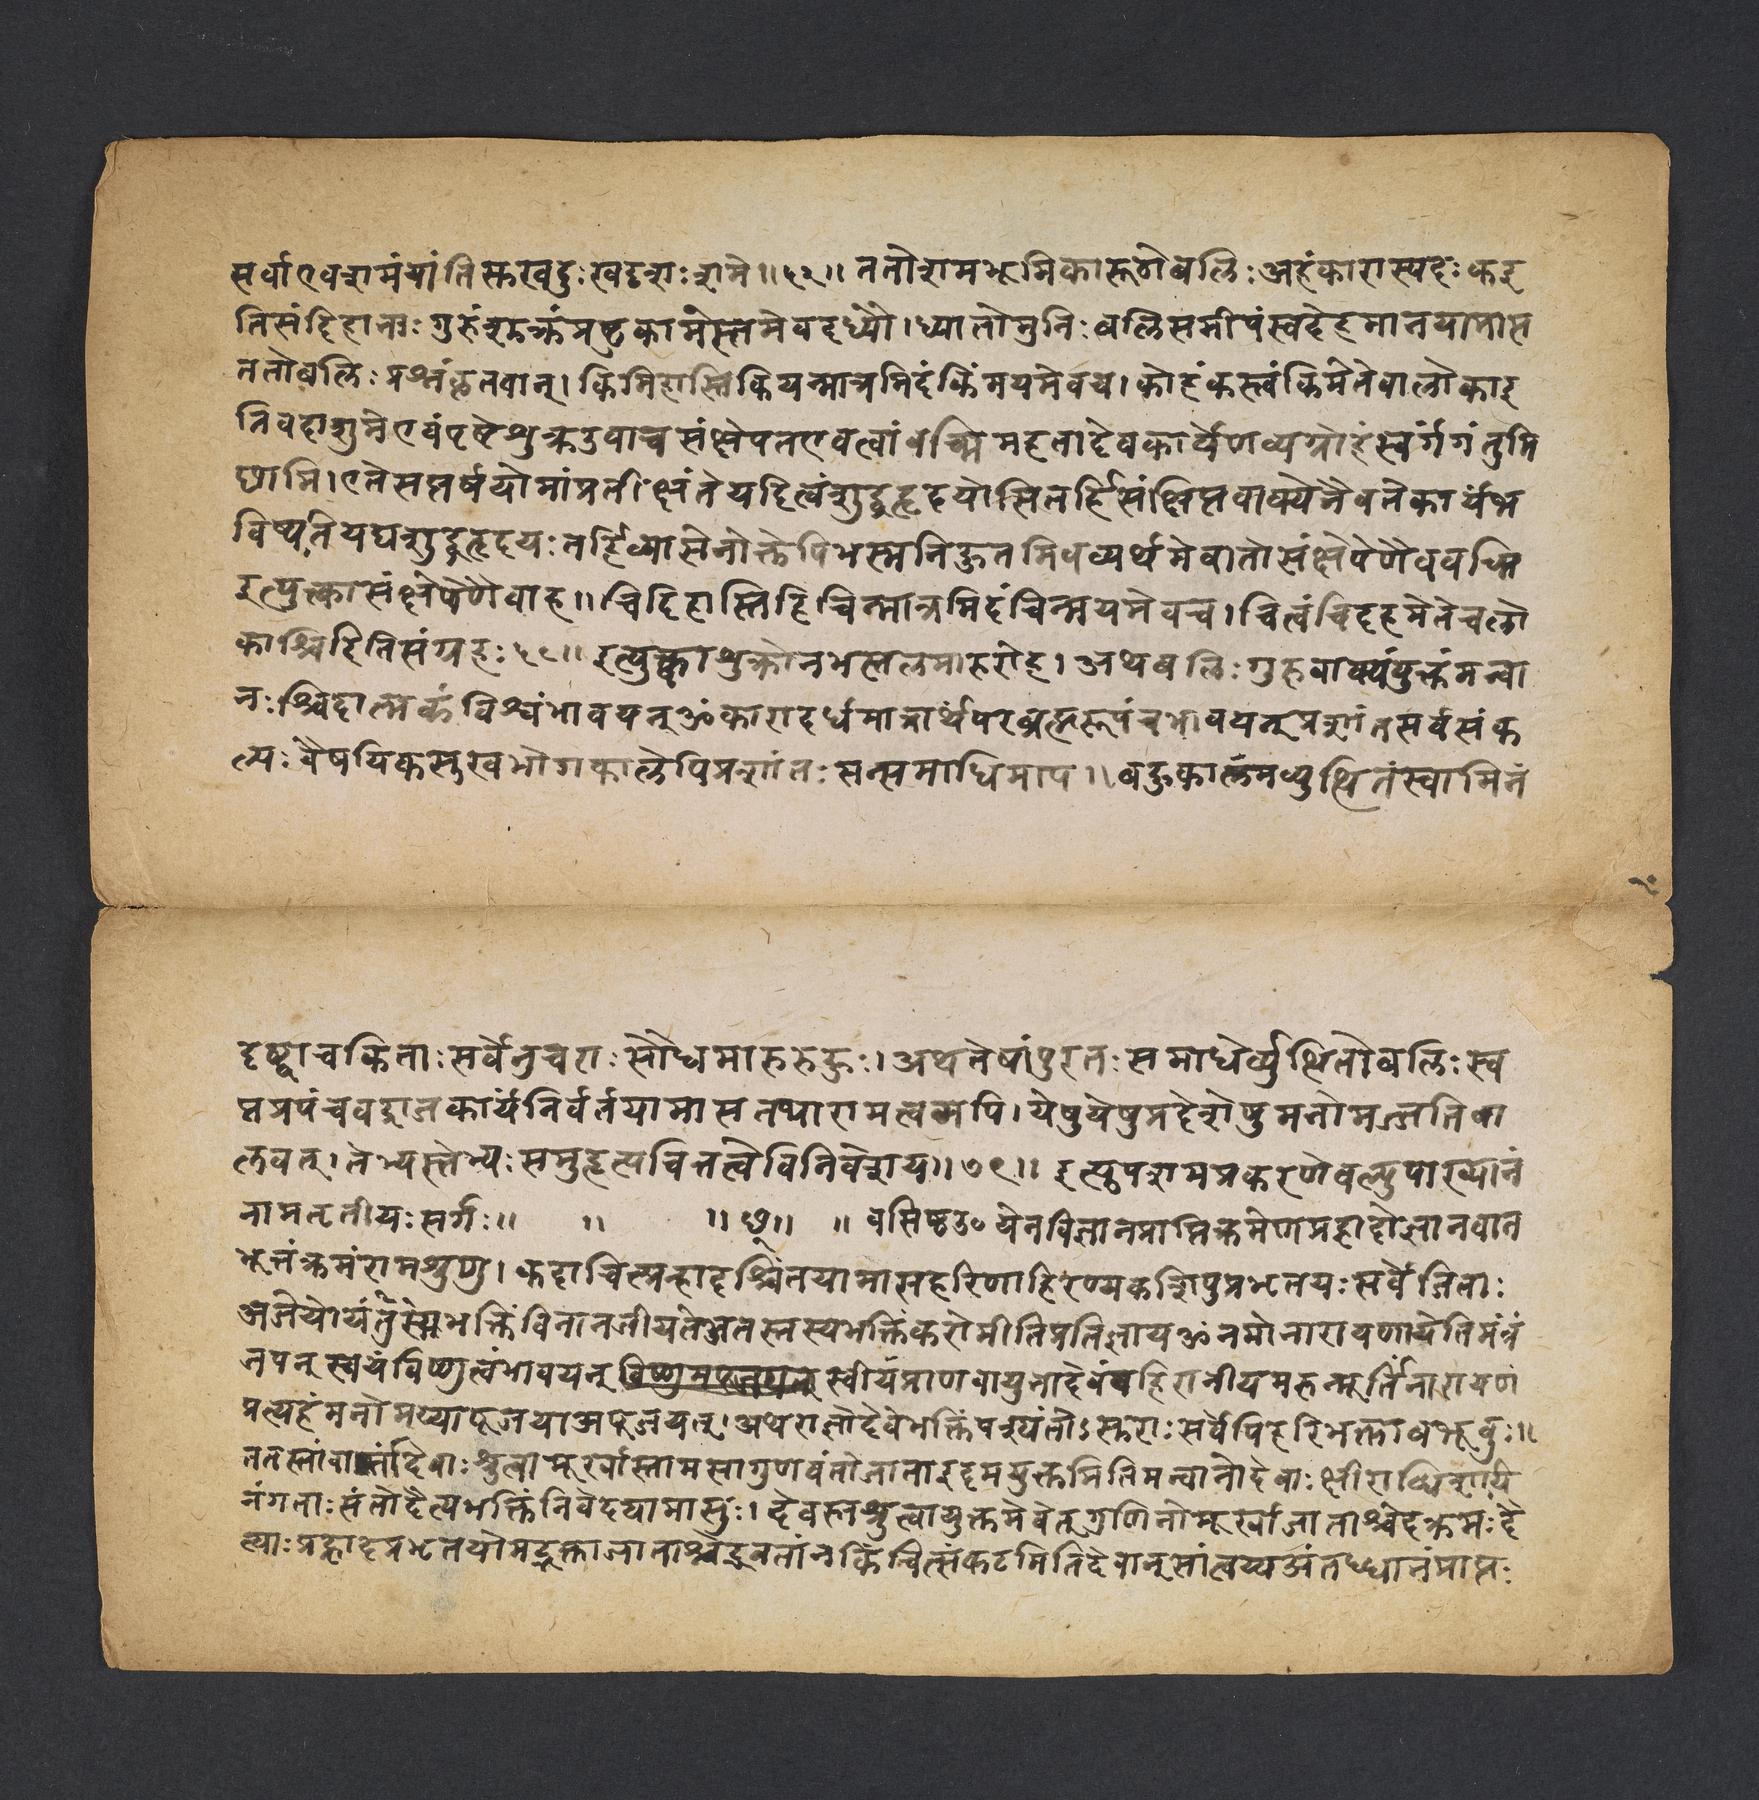 सर्वाएवशमंयांतिसुखदुःखदृशःशमे॥६२॥ ततोशमभूमिकारूढोबलिःअहंकारास्पदःकइ
तिसंदिहानःगुरुंशुक्रंप्रष्टुकामस्तमेवदध्यौ।ध्यातोमुनिःबलिसमीपंस्वदेहमानयामास
ततोबलिःप्रश्नंकृतवान्।किमिहास्तिकियन्मात्रमिदंकिंमयमेवच।कोहंकस्त्वंकिमेतेवालोकाइ
तिवदाशुमेएवंपृष्टेशुक्रउवाचसंक्षेपतएवत्वांवच्मिमहतादेवकार्येणव्यग्रोहंस्वर्गगंतुमि
छामि।एतेसप्तर्षयोमांप्रतीक्षंतेयदित्वंशुद्धहृदयोसितर्हिसंक्षिप्तवाक्येनैवतेकार्यंभ
विष्यतियद्यशुद्धहृदयःतर्हिव्यासेनोक्तेपिभस्मनिहुतमिवव्यर्थमेवातोसंक्षेपेणैववच्मि
इत्युक्त्वासंक्षेपेणैवाह॥चिदिहास्तिहिचिन्मात्रमिदंचिन्मयमेवच।चित्वंचिदहमेतेचलो
काश्चिदितिसंग्रहः६८॥इत्युक्त्वाशुक्रोनभस्तलमारुरोह।अथबलिःगुरुवाक्यंयुक्तंमन्वा
नःश्चिदात्मकंविश्वंभावयन्ॐकारादर्धमात्रार्थंपरब्रह्मरूपंचभावयन्प्रशांतसर्वसंक
ल्पःवैषयिकसुखभोगकालेपिप्रशांतःसन्समाधिमाप॥बहुकालमव्युत्थितंस्वामिनं
दृष्ट्वाचकिताःसर्वेनुचराःसौधमारुरुहुः।अथतेषांपुरतःसमाधेर्व्युत्थितोबलिःस्व
प्नप्रपंचवद्राजकार्यनिर्वर्तयामासतथारामत्वमपि।येषुयेषुप्रदेशेषुमनोमज्जतिबा
लवत्।तेभ्यस्तेभ्यःसमुद्धृत्यचित्तत्वेविनिवेशय॥७९॥ इत्युपशमप्रकरणेबल्युपाख्यानं
नामतृतीयःसर्गः॥ ॥ ॥छ॥ ॥वसिष्ठउ०येनविज्ञानप्राप्तिक्रमेणप्रह्लादोज्ञानवान
भूत्तंक्रमंरामशृणु।कदाचित्प्रह्लादश्चिंतयामासहरिणाहिरण्यकशिपुप्रभृतयःसर्वेजिताः
अजेयोयंतस्यभक्तिंविनानजीयतेअतस्तस्यभक्तिंकरोमीतिप्रतिज्ञायॐनमोनारायणायेतिमंत्रं
जपन्स्वयंविष्णुत्वंभावयन्स्वीयप्राणवायुनादेवंबहिरानीयमरुन्मूर्तिंनारायणं
प्रत्यहंमनोमय्यापूजयाअपूजयत्।अथराज्ञोदेवेभक्तिंपश्यंतोऽसुराःसर्वेपिहरिभक्ताबभूवुः॥
ततस्तांवार्तांदेवाःश्रुत्वामूर्खास्तामसागुणवंतोजाताइदमयुक्तमितिमन्वानोदेवाःक्षीराब्धिशायि
नंगताःसंतोदैत्यभक्तिंनिवेदयामासुः।देवस्तश्रुत्वायुक्तमेवेतत्गुणिनोमूर्खाजाताश्चेदक्रमःदै
त्याःप्रह्लादप्रभृतयोमद्भक्ताजाताश्चेद्भवतांनकिंचित्संकटमितिदेवान्सांत्वय्यअंतर्ध्धानंप्राप्तः